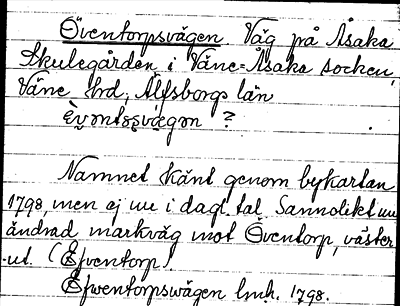 Öventorpsvägen Väg på Åsaka
Skulegården i Väne-Åsaka socken,
Väne hrd, Älfsborgs län
?
Namnet känt genom bykartan
1798, men ej nu i dagl. tal. Sannolikt nu
ändrad markväg mot Öventorp, väster-
ut. (Efventorp).
Efwentorpswägen lmh. 1798.